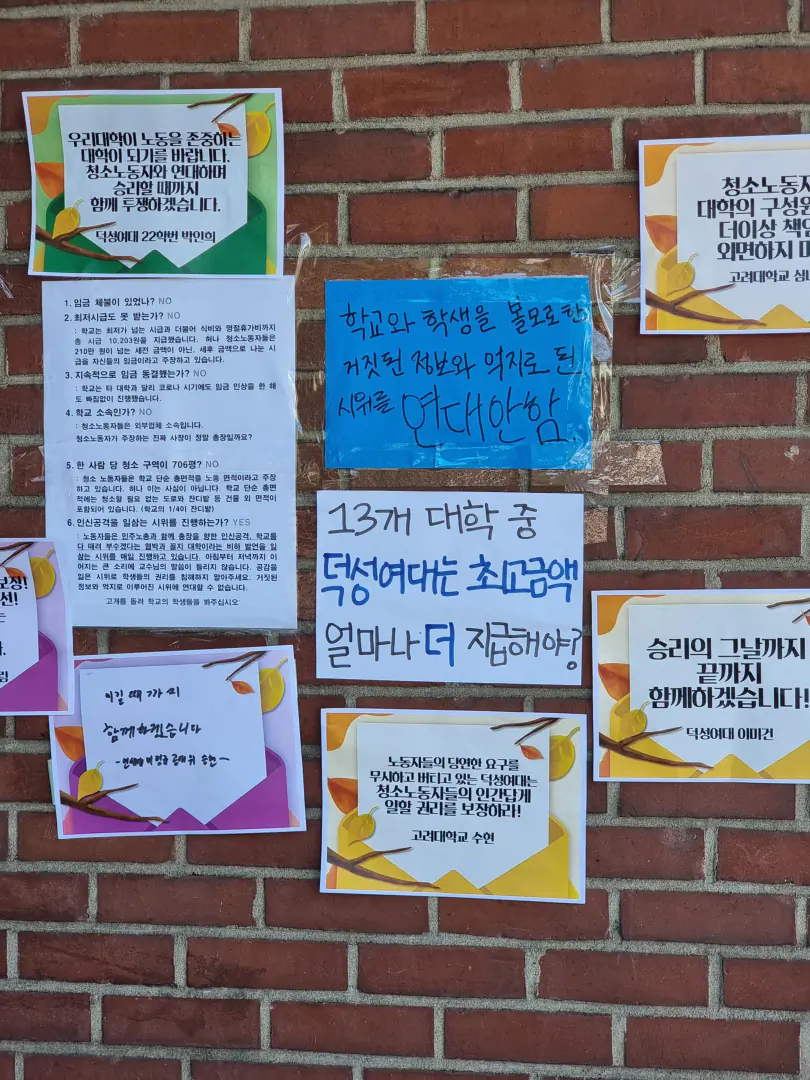 우리대학이 노동을 존중하는
대학이 되기를 바랍니다.
청소노동자와 연대하며
승리할 때까지
함께 투쟁하겠습니다.
덕성여대 22학번 박인희
청소노동자
대학의 구성원
더이상 책임
외면하지 마
고려대학교 심
1. 임금 체불이 있었나? NO
2. 최저시급도 못 받는가? NO
: 학교는 최저가 넘는 시급과 더불어 식비와 명절휴가비까지
총 시급 10,203원을 지급했습니다. 허나 청소노동자들은
210만 원이 넘는 세전 금액이 아닌, 세후 금액으로 나눈 시
급을 자신들의 임금이라고 주장하고 있습니다.
3. 지속적으로 임금 동결했는가? NO
: 학교는 타 대학과 달리 코로나 시기에도 임금 인상을 한 해
도 빠짐없이 진행했습니다.
4. 학교 소속인가? NO
: 청소노동자들은 외부업체 소속입니다.
청소노동자가 주장하는 진짜 사장이 정말 총장일까요?
5. 한 사람 당 청소 구역이 706평? NO
: 청소 노동자들은 학교 단순 총면적을 노동 면적이라고 주장
하고 있습니다. 허나 이는 사실이 아닙니다. 학교 단순 총면
적에는 청소할 필요 없는 도로와 잔디밭 등 건물 외 면적이
포함되어 있습니다. (학교의 1/4이 잔디밭)
6. 인신공격을 일삼는 시위를 진행하는가? YES
: 노동자들은 민주노총과 함께 총장을 향한 인신공격, 학교를
다 때려 부수겠다는 협박과 꼴지 대학이라는 비하 발언을 일
삼는 시위를 매일 진행하고 있습니다. 아침부터 저녁까지 이
어지는 큰 소리에 교수님의 말씀이 들리지 않습니다. 공감을
잃은 시위로 학생들의 권리를 침해하지 말아주세요. 거짓된
정보와 억지로 이루어진 시위에 연대할 수 없습니다.
고개를 돌려 학교의 학생들을 봐주십시오
학교와 학생을 볼모로 한
거짓된 정보와 억지로 된
시위를 연대안함.
13개 대학 중
덕성여대는 최고금액
얼마나 더 지급해야?
보장!
선!
는
림
승리의 그날까지
끝까지
함께하겠습니다!
덕성여대 이미건
이길 때까지
함께하겠습니다
노동자들의 당연한 요구를
무시하고 버티고 있는 덕성여대는
청소노동자들의 인간답게
일할 권리를 보장하라!
고려대학교 수현